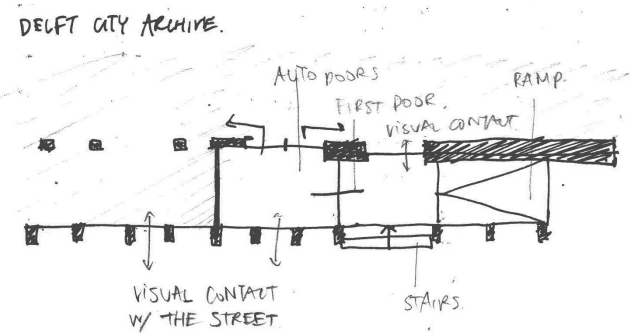 DELFT CITY ARCHIVE.
AUTO DOORS
RAMP.
FIRST DOOR.
VISUAL CONTACT
VISUAL CONTACT
W/ THE STREET
STAIRS.